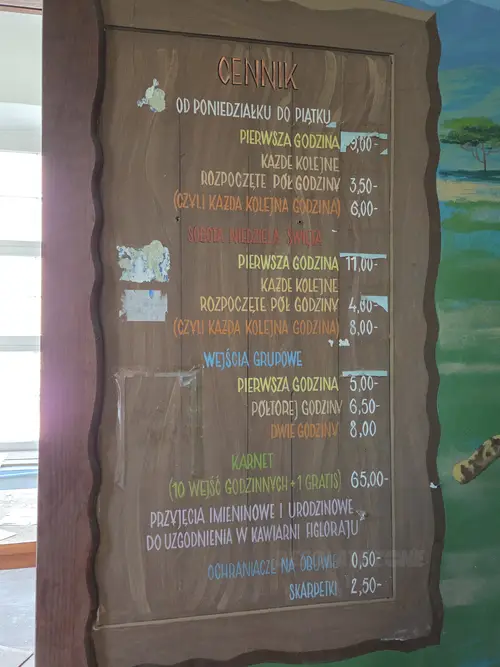 CENNIK
OD PONIEDZIAŁKU DO PIĄTKU
PIERWSZA GODZINA 9,00-
KAŻDE KOLEJNE
ROZPOCZĘTE PÓŁ GODZINY 3,50-
(CZYLI KAŻDA KOLEJNA GODZINA) 6,00-
SOBOTA NIEDZIELA ŚWIĘTA
PIERWSZA GODZINA 11,00-
KAŻDE KOLEJNE
ROZPOCZĘTE PÓŁ GODZINY 4,00-
(CZYLI KAŻDA KOLEJNA GODZINA) 8,00-
WEJŚCIA GRUPOWE
PIERWSZA GODZINA 5,00-
PÓŁTOREJ GODZINY 6,50-
DWIE GODZINY 8,00
KARNET
(10 WEJŚĆ GODZINNYCH + 1 GRATIS) 65,00-
PRZYJĘCIA IMIENINOWE I URODZINOWE
DO UZGODNIENIA W KAWIARNI FIGLORAJU
OCHRANIACZE NA OBUWIE 0,50-
SKARPETKI 2,50-